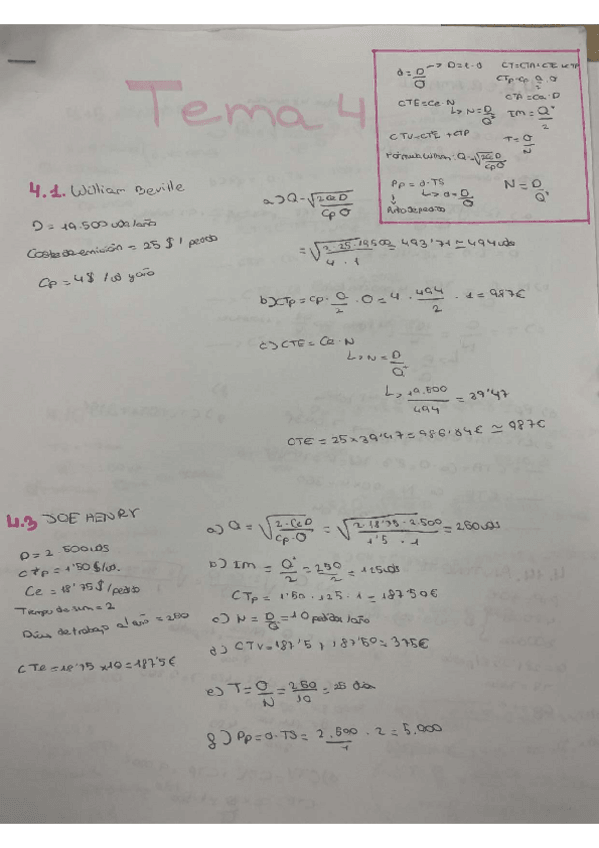 Tema 4
d = D/θ → D = t · θ
CT = CTA + CTE + CTP
CTp = cp · Q/2 · θ
CTE = Ce · N
↳ N = D/Q*
CTA = Ca · D
Im = Q*/2
CTV = CTE + CTP
T = θ/N
Fórmula Wilson: Q = √2CeD/cpθ
Pp = d · TS
↳ d = D/θ
N = D/Q*
↓
Punto de pedido
4.1. William Beville
D = 19.500 uds/año
Costes de emisión = 25 $ / pedido
Cp = 4$ / ud y año
a) Q = √2CeD/Cp θ
= √2·25·19500/4 · 1 = 493'71 ≃ 494 uds
b) CTp = cp · Q/2 · θ = 4 · 494/2 · 1 = 987€
c) CTE = Ce · N
↳ N = D/Q*
↳ 19.500/494 = 39'47
CTE = 25 x 39'47 = 986'84€ ≃ 987€
4.3 JOE HENRY
D = 2.500 uds
CTp = 1'50 $/ud.
Ce = 18'75 $ / pedido
Tiempo de sum = 2
Días de trabajo al año = 250
CTe = 18'75 x10 = 187'5€
a) Q = √2·CeD/Cp·θ = √2·18'75·2.500/1'5 · 1 = 250 uds
b) Im = Q*/2 = 250/2 = 125 uds
CTp = 1'50 · 125 · 1 = 187'50€
c) N = D/Q = 10 pedidos/año
d) CTV = 187'5 + 187'50 = 375€
e) T = θ/N = 250/10 = 25 días
g) Pp = d · TS = 2.500/1 · 2 = 5.000